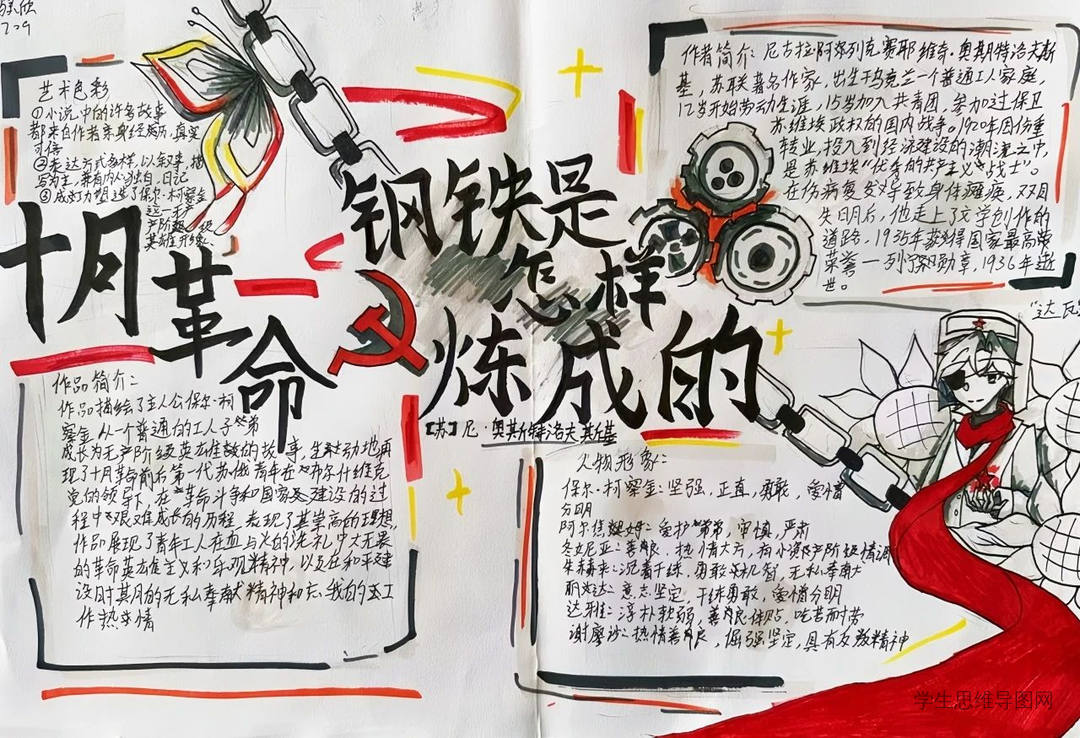 艺术色彩
①小说中的许多故事
都来自作者亲身经历,真实
可信
②表达方式多样,以叙事、描
写为主,兼有内心独白、日记
③成功塑造了保尔·柯察金
这一无
产阶级
英雄形象
十月革命
钢铁是
怎样
炼成的
[苏]尼·奥斯特洛夫斯基
作者简介:尼古拉·阿耶维奇·奥斯特洛夫斯
基,苏联著名作家,出生于乌克兰一个普通工人家庭,
12岁开始劳动生涯,15岁加入共青团,参加过保卫
苏维埃政权的国内战争。1920年因伤重
转业,投入到经济建设的潮流之中,
是苏维埃“优秀的共产主义战士”。
在伤病复发导致身体瘫痪、双目
失明后,他走上了文学创作的
道路,1935年获得国家最高荣
荣誉—列宁勋章,1936年逝
世。
"达瓦"
作品简介:
作品描绘了主人公保尔·柯
察金从一个普通的工人子弟
成长为无产阶级英雄的故事,生动地再
现了十月革命前后第一代苏俄青年在布尔什维克
党的领导下,在革命斗争和国家建设的过
程中艰难成长的历程,表现了其崇高的理想,
作品展现了青年工人在血与火的洗礼中大无畏
的革命英雄主义和乐观精神,以及在和平建
设时其月的无私奉献精神和忘我的工
作热情
人物形象:
保尔·柯察金:坚强,正直,勇敢,爱憎
分明
阿尔焦姆:爱护弟弟,审慎,严肃
冬妮亚:善良、热情大方,有小资产阶级情调
朱赫来:沉着干练,勇敢机智,无私奉献
丽达:意志坚定,干练勇敢,爱憎分明
达雅:淳朴软弱,善良体贴,吃苦耐劳
谢廖沙:热情善良,倔强坚定,具有反叛精神
学生思维导图网